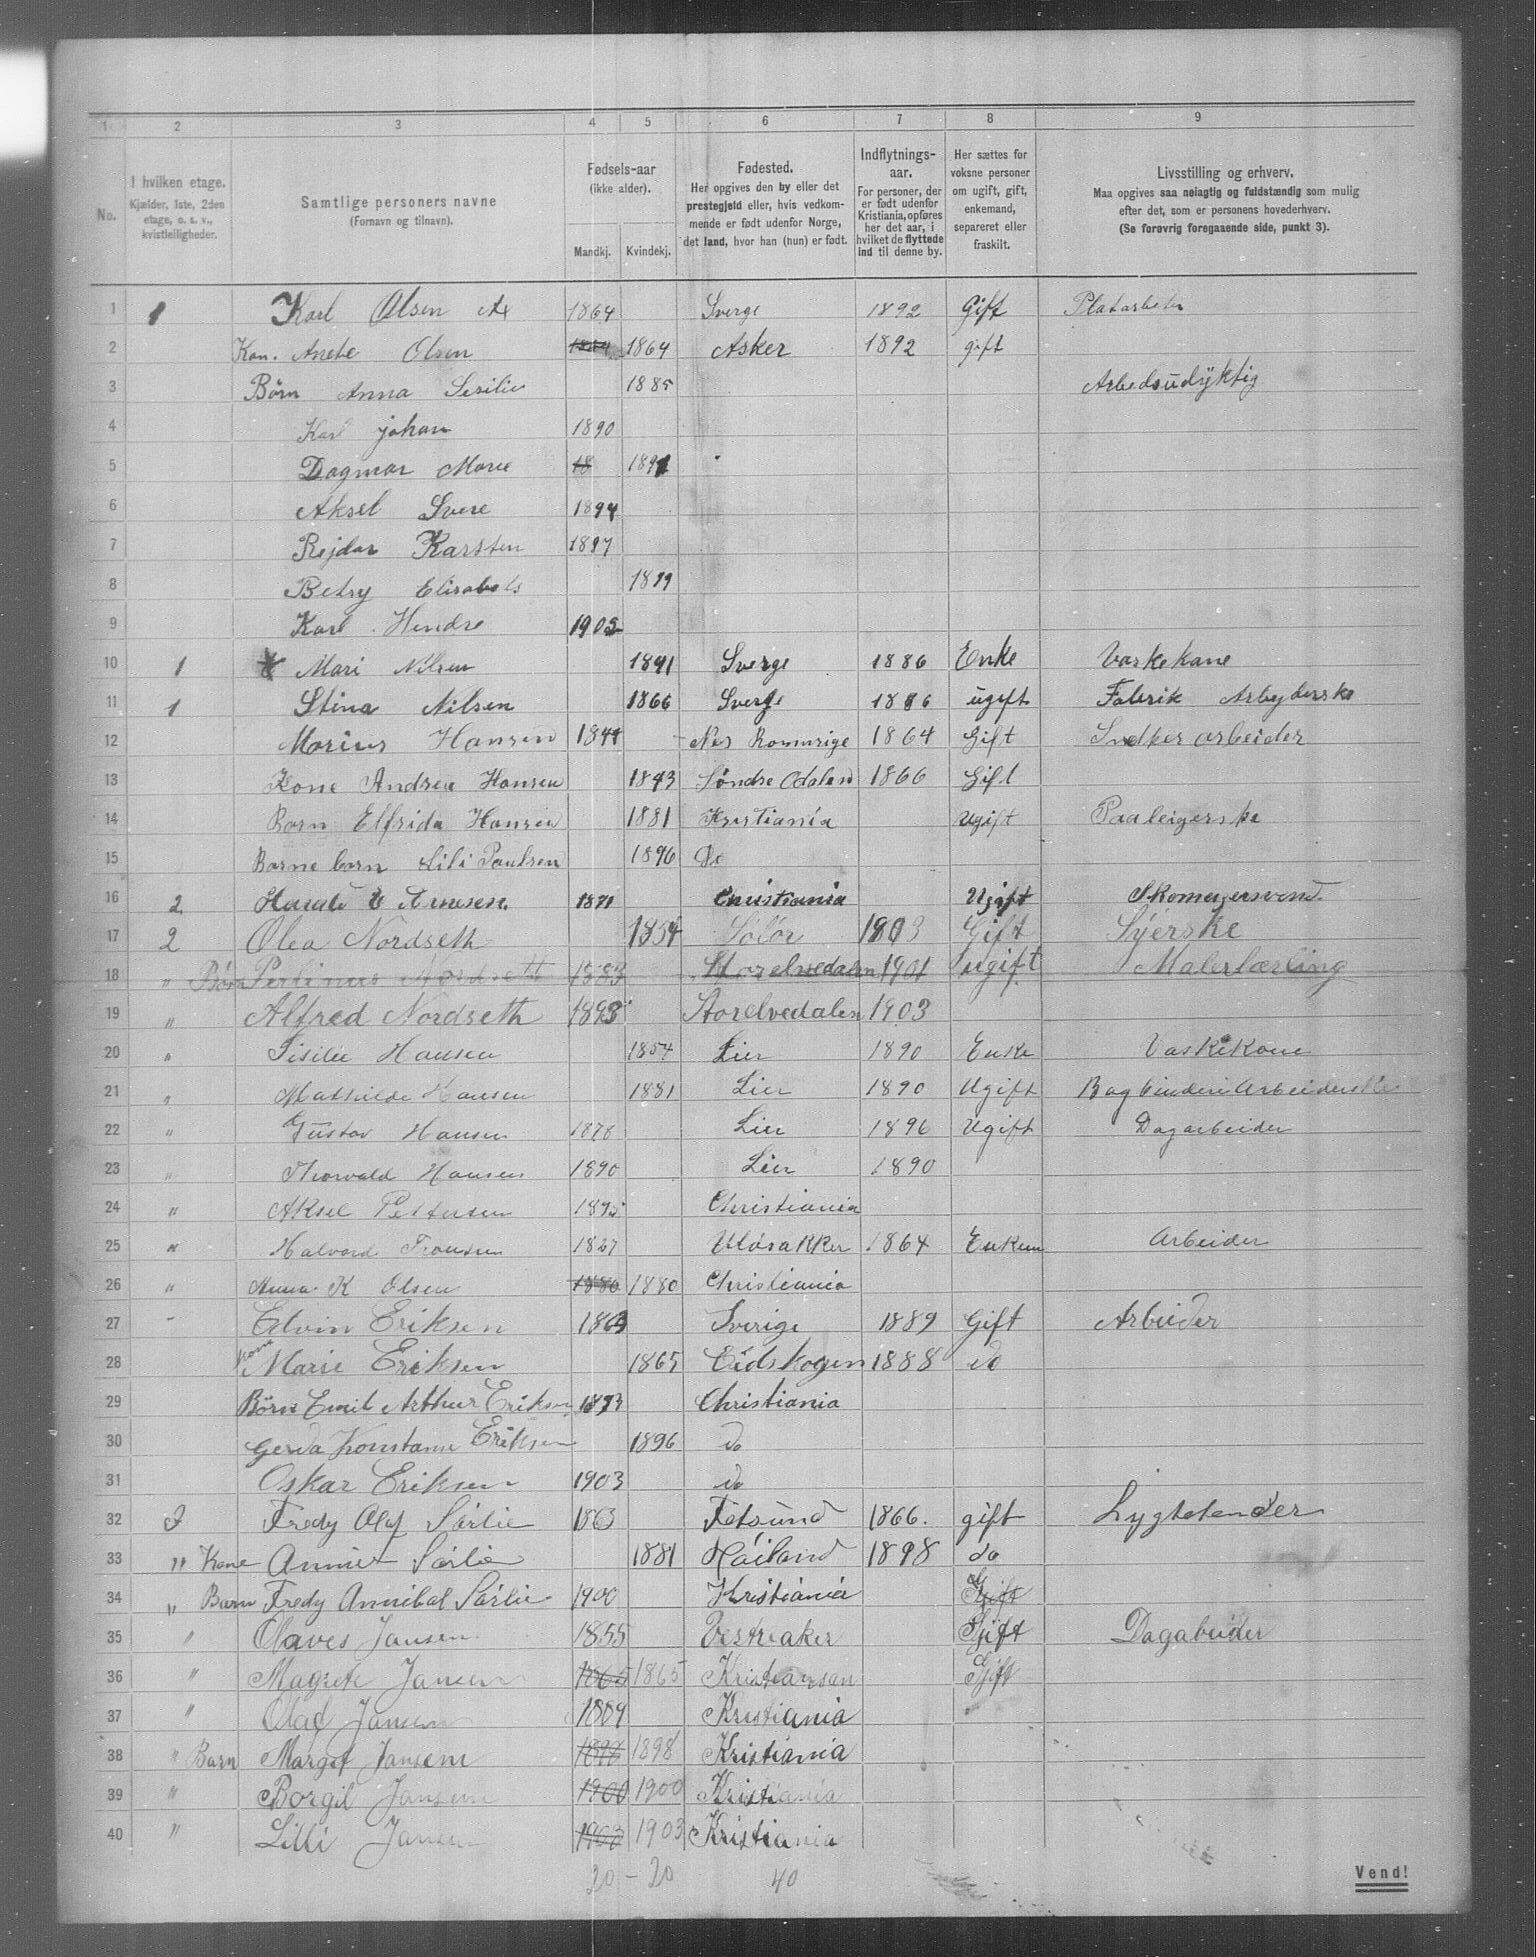 1 2 3 4 5 6 7 8 9
No.
I hvilken etage. Kjælder, 1ste, 2den etage, o. s. v., kvistleiligheder.
Samtlige personers navne (Fornavn og tilnavn).
Fødsels-aar (ikke alder). Mandkj. Kvindekj.
Fødested. Her opgives den by eller det prestegjeld eller, hvis vedkommende er født udenfor Norge, det land, hvor han (hun) er født.
Indflytnings-aar. For personer, der er født udenfor Kristiania, opføres her det aar, i hvilket de flyttede ind til denne by.
Her sættes for voksne personer om ugift, gift, enkemand, separeret eller fraskilt.
Livsstilling og erhverv. Maa opgives saa nøiagtig og fuldstændig som mulig efter det, som er personens hovederhverv. (Se forøvrig foregaaende side, punkt 3).
1 1 Karl Olsen 1864 Sverge 1892 Gift Platarbeter
2 Kon. Anete Olsen 1864 Asker 1892 gift
3 Børn Anna Sesilie 1885 Arbedsudyktig
4 Karl johan 1890
5 Dagmar Marie 18 1891
6 Aksel Svere 1894
7 Rejdar Karsten 1897
8 Betsy Elisabets 1899
9 Karl Hendre 1902
10 1 Mari Nilsen 1841 Sverge 1886 Enke Vaskekane
11 1 Stina Nilsen 1866 Sverge 1886 ugift Faberik Arbejderske
12 Marius Hansen 1841 Nes Romerige 1864 Gift arbeider
13 Kone Andrea Hansen 1843 Søndre Odalen 1866 Gift
14 Barn Elfrida Hansen 1881 Kristiania Ugift Paaleigerske
15 Barne barn Lili Paulsen 1896 Do
16 2 Harald E Arnesen. 1871 Christiania Ugift Skomagersvend.
17 2 Olea Nordseth 1854 Solør 1903 Gift Syerske
18 " Børn Nordseth 1883 Storelvedalen 1901 ugift Malerlærling
19 " Alfred Nordseth 1893 Storelvedalen 1903
20 " Sisilie Hansen 1854 Lier 1890 Enke Vaskekone
21 " Mathilde Hansen 1881 Lier 1890 Ugift Bogbinderi Arbeiderske
22 " Gustav Hansen 1878 Lier 1896 Ugift Dagarbeider
23 " Thorvald Hansen 1890 Lier 1890
24 " Aksel Pettersen 1895 Christiania
25 " Halvord Fransen 1827 Uløsakker 1864 Enkem Arbeider
26 " Anna K Olsen 1880 1880 Christiania
27 " Edvin Eriksen 1863 Sverige 1889 Gift Arbeider
28 Kone Marie Eriksen 1865 Eidskogen 1888 do
29 Børn Emil Arthur Eriksen 1893 Christiania
30 Gerda Konstanse Eriksen 1896 do
31 Oskar Eriksen 1903 do
32 2 Fredy Olaf Sørlie 1863 Fetsund 1866. gift Lygtetender
33 " Kone Annie Sørlie 1881 Høiland 1898 do
34 " Barn Fredy Annibal Sørlie 1900 Kristiania Gift
35 " Olaves Jansen 1855 Vestreaker Gift Dagabeider
36 " Magrete Jansen 1865 1865 Kristiansan Gift
37 " Olaf Jansen 1889 Kristiania
38 " Barn Margot Jansen 1898 1898 Kristiania
39 " Borgil Jansen 1900 1900 Kristiania
40 " Lilli Jansen 1903 1903 Kristiania
20 - 20 40
Vend!